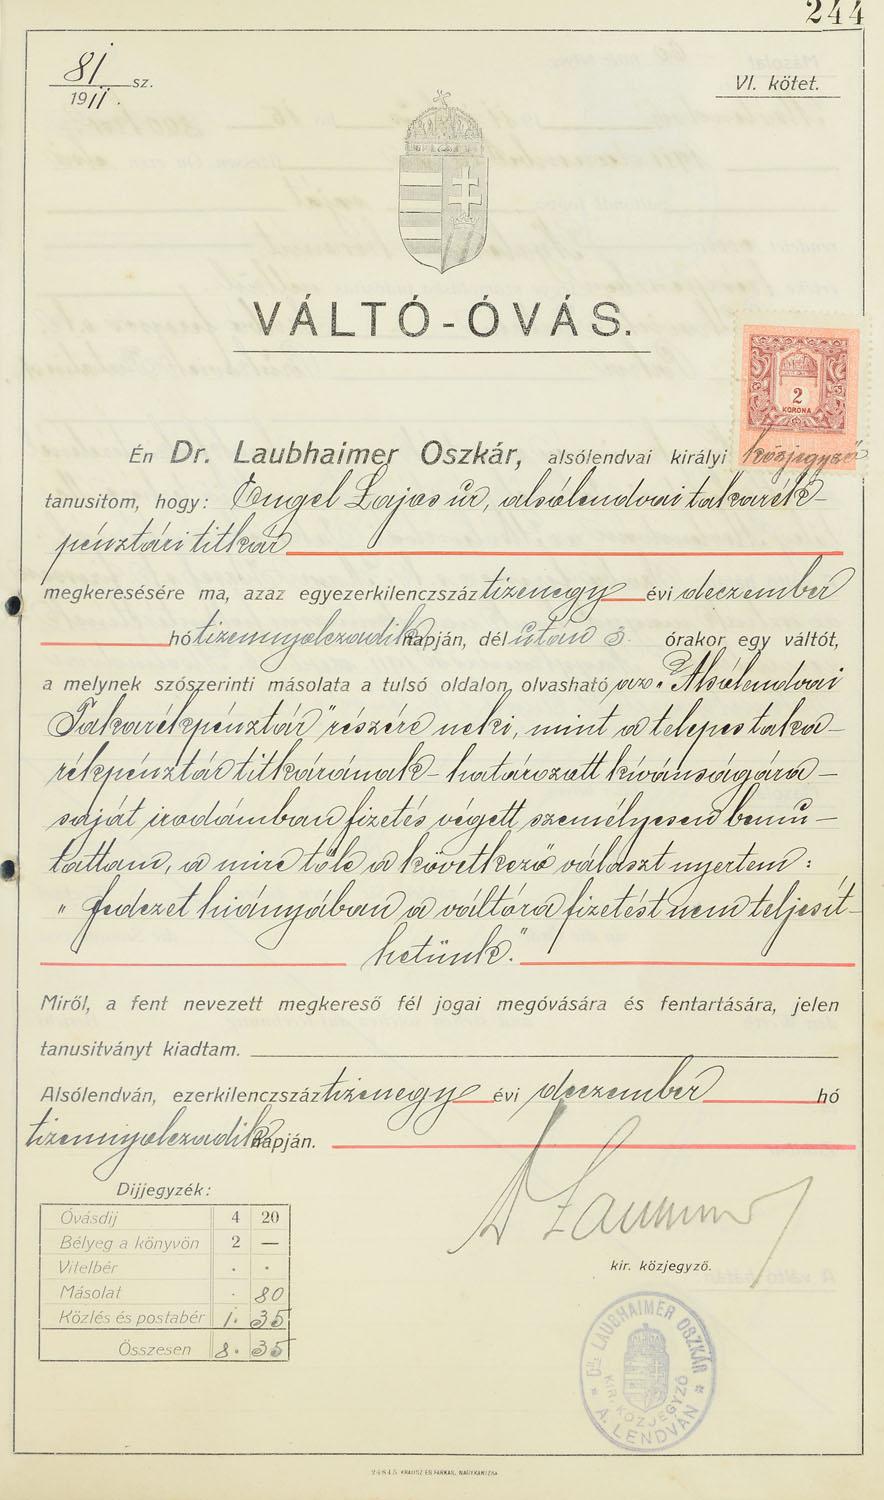 244
81 sz.
1911.
VI. kötet.
VÁLTÓ-ÓVÁS.
2
KORONA
Én Dr. Laubhaimer Oszkár, alsólendvai királyi közjegyző
tanusitom, hogy: Engel Lajos úr, alsólendvai takarék-
pénztári titkár
megkeresésére ma, azaz egyezerkilenczszáz tizenegy évi deczember
hó tizennyolczadik napján, dél után 3 órakor egy váltót,
a melynek szószerinti másolata a tulsó oldalon olvasható, az "Alsólendvai
Takarékpénztár" részére neki, mint a telepes taka-
rékpénztár titkárának - határozott kívánságára -
saját irodámban fizetés végett személyesen bemu-
tattam, a mire tőle a következő választ nyertem:
" fedezet hiányában a váltóra fizetést nem teljesít-
hetünk."
Miről, a fent nevezett megkereső fél jogai megóvására és fentartására, jelen
tanusitványt kiadtam.
Alsólendván, ezerkilenczszáz tizenegy évi deczember hó
tizennyolczadik napján.
Dijjegyzék:
Óvásdij 4 20
Bélyeg a könyvön 2 —
Vitelbér . .
Másolat . 80
Közlés és postabér 1. 35
Összesen 8. 35
kir. közjegyző.
Dr. LAUBHAIMER OSZKÁR
KIR. KÖZJEGYZŐ
A. LENDVÁN
24845 KRAUSZ ÉS FARKAS, NAGYKANIZSA